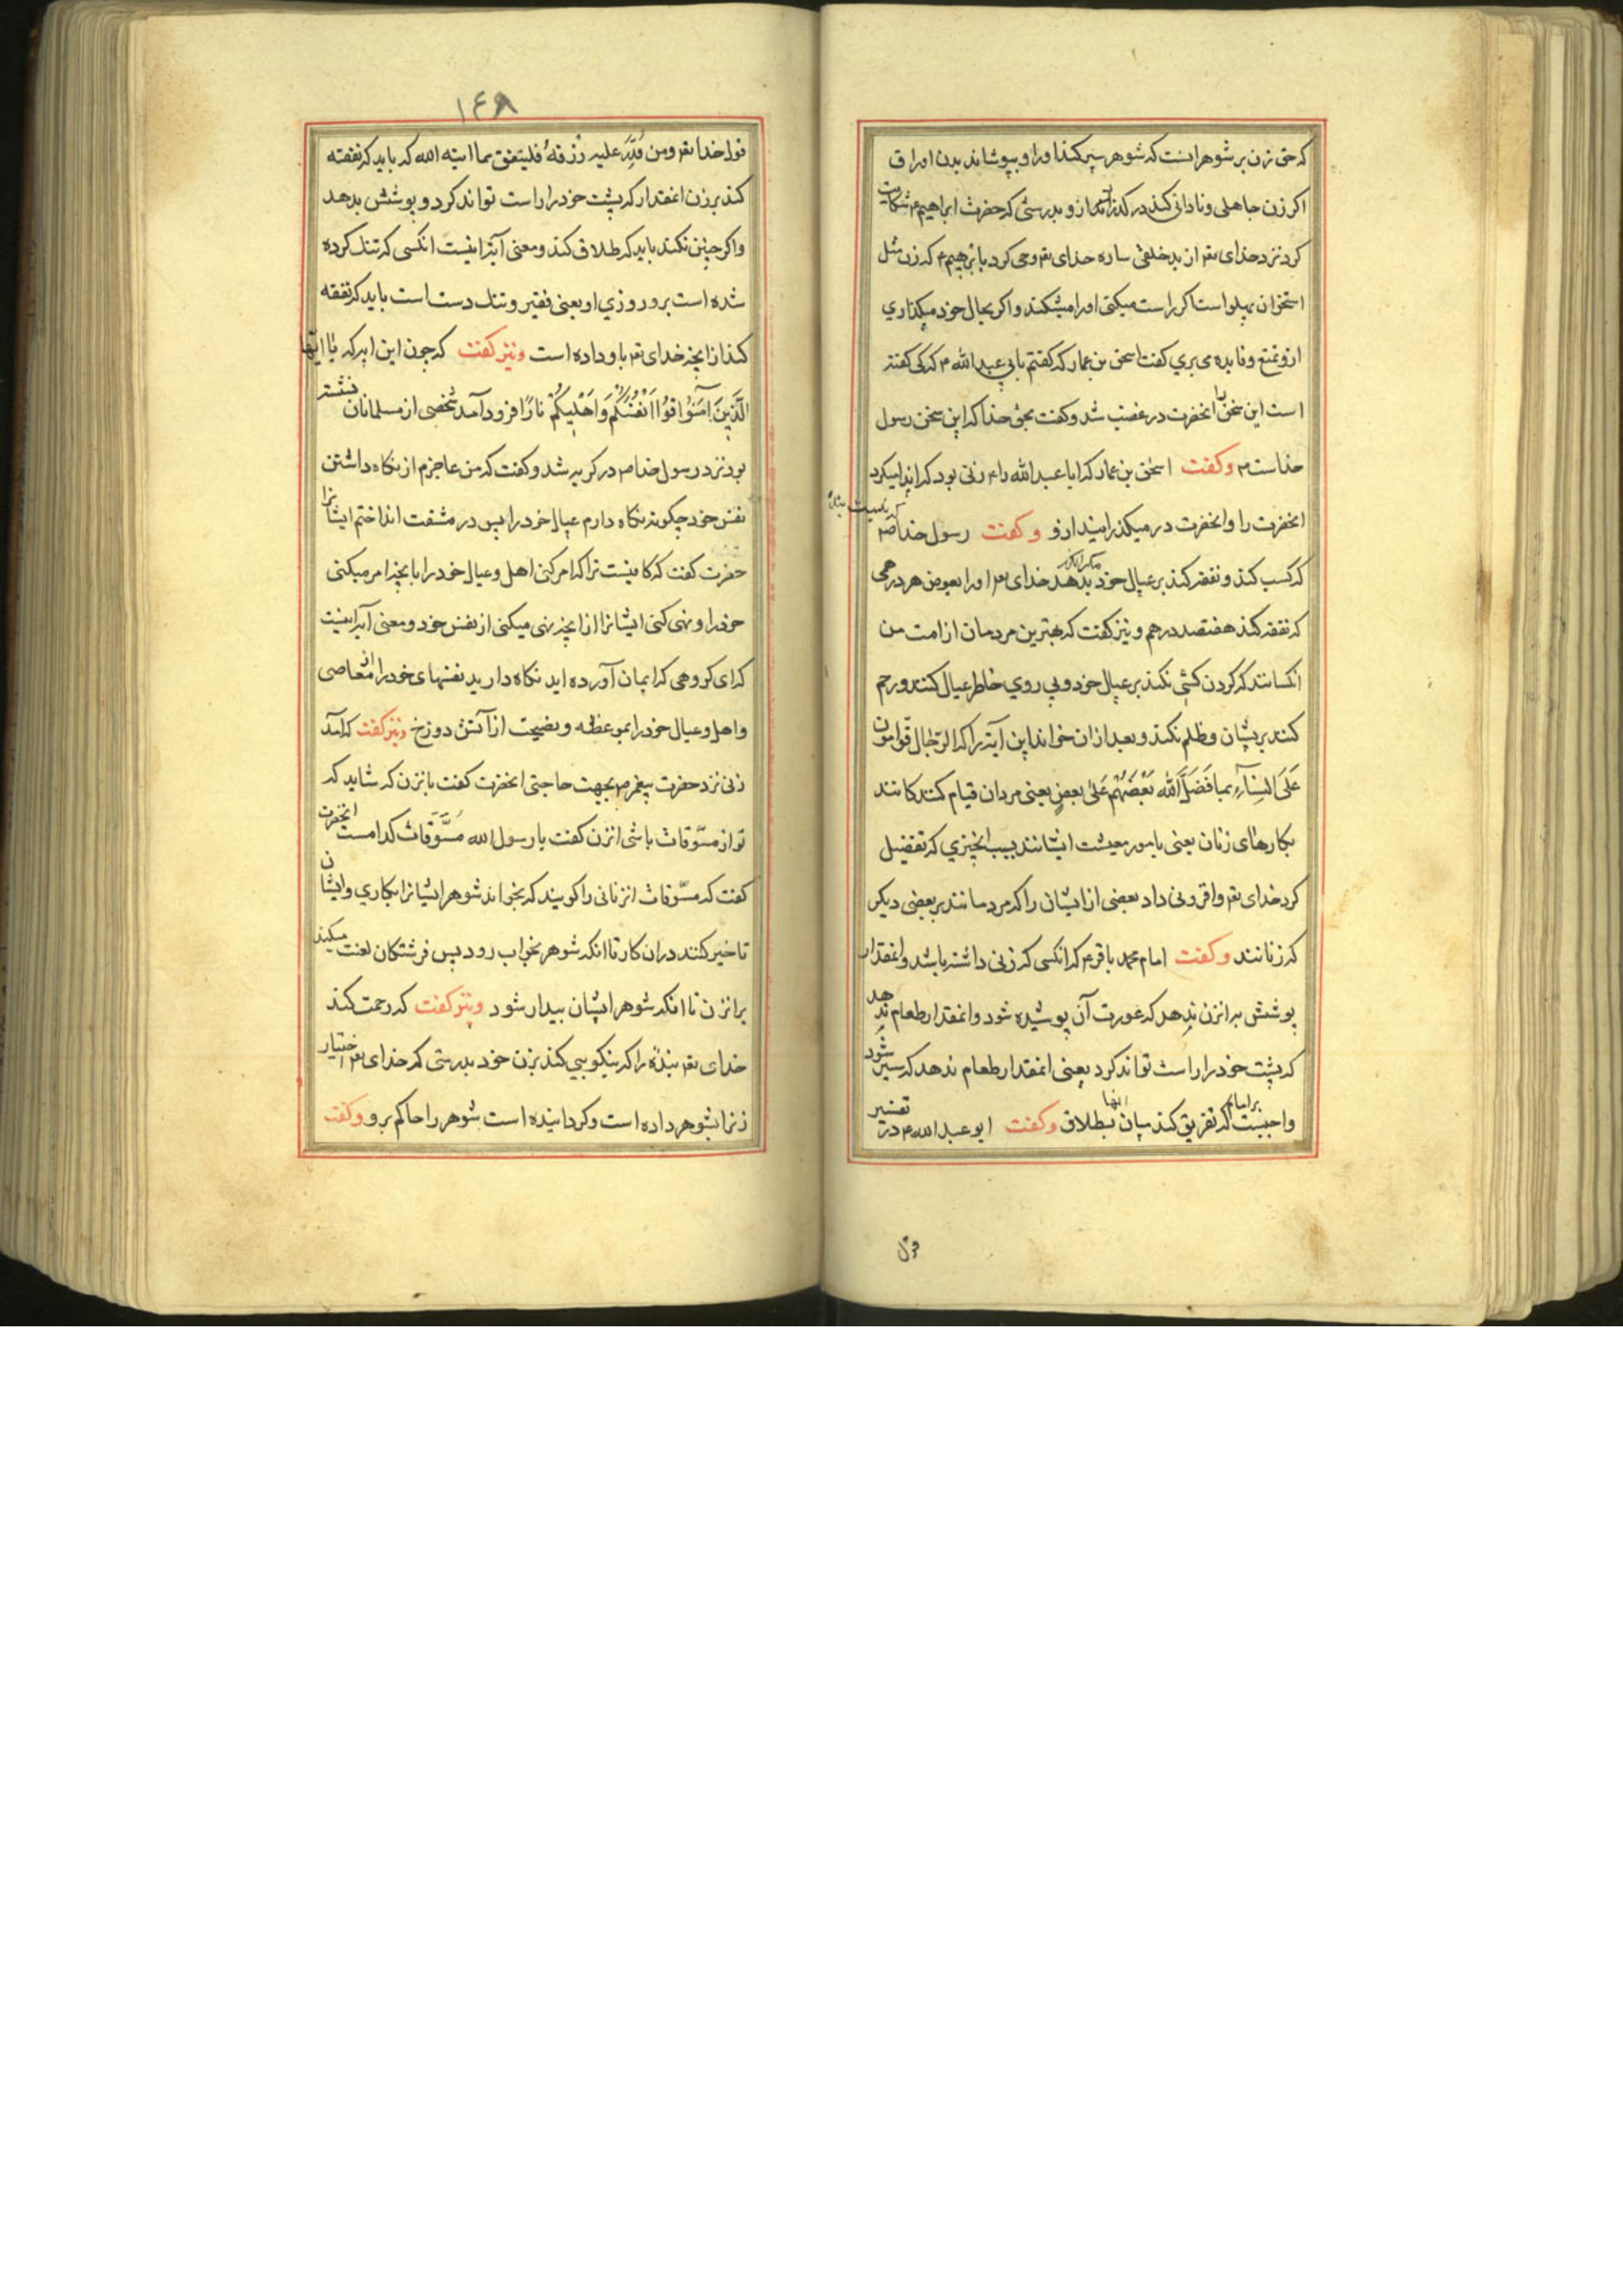 که حق زن بر شوهر انست که شوهر سیر کند او را و بپوشاند بدن او را و
اکر زن جاهلی و نادانی کند در کذراند ازو بدرستی که حضرت ابراهیم ع شکایت
کرد نزد خدای تع از بد خلقی ساره خدای تع وحی کرد بابرهیم ع که زن مثل
استخوان پهلو است اکر راست میکنی او را میشکند و اکر بحال خود میکذاری
ازو تمتع و فایده می بری کفت اسحق بن عمار که کفتم بابی عبد الله ع که کی کفته
است این سخن را انحضرت در غضب شد و کفت بحق خدا که این سخن رسول
خداست ص و کفت اسحق بن عمار که ابا عبد الله را ع زنی بود که ایذا میکرد
انحضرت را و انحضرت در میکذرانیند ازو و کفت رسول خدا ص
که کسب کند و نفقه کند بر عیال خود مکر انکه بدهد خدای تع او را بعوض هر درهمی
که نفقه کند هفتصد درهم و نیز کفت که بهترین مردمان از امت من
انکسانند که کردن کشی نکنند بر عیال خود و پی روی خاطر عیال کنند و رحم
کنند بریشان و ظلم نکنند و بعد ازان خواند این آیه را که الرّجال قوّامون
عَلَی النِساءِ بما فَضَلَ الله بَعْضَهُم عَلی بعضٍ یعنی مردان قیام کنندکانند
بکارهای زنان یعنی بامور معیشت ایشانند بسبب انچیزی که تفضیل
کرد خدای تع و افزونی داد بعضی از ایشان را که مردمانند بر بعضی دیکر
که زنانند و کفت امام محمد باقر ع که انکسی که زنی داشته باشد و انمقدار
پوشش برانزن ندهد که عورت آن پوشیده شود و انمقدار طعام ندهد
که پشت خود را راست تواند کرد یعنی انمقدار طعام ندهد که سیر شود
واجبست بر امام که تفریق کند میان انها بطلاق و کفت ابو عبد الله ع در تفسیر
قول
١٤٨
قول خدا تع ومن قُدِرَ علیه رزقهُ فلینفق مما اتیه الله که باید که نفقه
کند بر زن انمقدار که پشت خود را راست تواند کرد و پوشش بدهد
و اکر چنین نکند باید که طلاق کند و معنی آیه اینست انکسی که تنک کرده
شده است برو روزی او یعنی فقیر و تنک دست است باید که نفقه
کند از انچه خدای تع باو داده است و نیز کفت که چون این ایه که یا ایّها
الَّذینَ اٰمَنُوا قُوا اَنْفُسَکُمْ وَ اَهْلیکُمْ نارًا فرود آمد شخصی از مسلمانان نشسته
بود نزد رسول خدا ص در کریه شد و کفت که من عاجزم از نکاه داشتن
نفس خود چکونه نکاه دارم عیال خود را پس در مشقت انداختم ایشانرا
حضرت کفت که کافیست ترا که امر کنی اهل و عیال خود را بانچه امر میکنی
خود را و نهی کنی ایشانرا از انچه نهی میکنی از نفس خود و معنی آیه اینست
که ای کروهی که ایمان آورده اید نکاه دارید نفسهای خود را از معاصی
و اهل و عیال خود را بموعظه و نصیحت از آتش دوزخ و نیز کفت که آمد
زنی نزد حضرت پیغمبر ص بجهت حاجتی انحضرت کفت بانزن که شاید که
تو از مسوّقات باشی انزن کفت یا رسول الله مُسَّوَقات کدامست انحضرت
کفت که مسوّقات انزنانی را کویند که بخواند شوهر ایشانرا بکاری و ایشان
تاخیر کنند دران کار تا انکه شوهر بخواب رود پس فرشتکان لعنت میکنند
برانزن تا انکه شوهر ایشان بیدار شود و نیز کفت که رحمت کند
خدای تع بنده را که نیکویی کند بزن خود بدرستی که خدای تع اختیار
زنرا بشوهر داده است و کردانیده است شوهر را حاکم برو و کفت